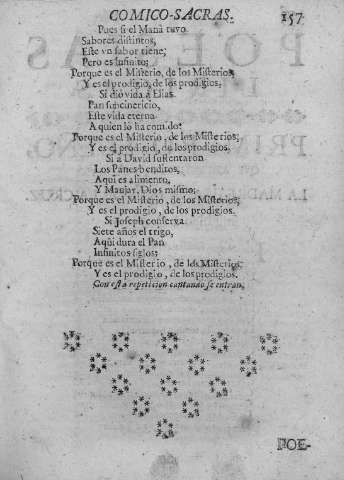 COMICO-SACRAS. 157
Pues si el Manà tuvo
Sabores distintos,
Este vn sabor tiene;
Pero es infinito;
Porque es el Misterio, de los Misterios,
Y es el prodigio, de los prodigios.
Si diò vida à Elias
Pan subcinericio,
Este vida eterna
A quien lo ha comido:
Porque es el Misterio, de los Misterios;
Y es el prodigio, de los prodigios.
Si à David sustentaron
Los Panes benditos,
Aqui es alimento,
Y Manjar, Dios mismo;
Porque es el Misterio, de los Misterios;
Y es el prodigio, de los prodigios.
Si Joseph conserva
Siete años el trigo,
Aqui dura el Pan
Infinitos siglos;
Porque es el Misterio, de los Misterios;
Y es el prodigio, de los prodigios.
Con esta repeticion cantando se entran.
POE-